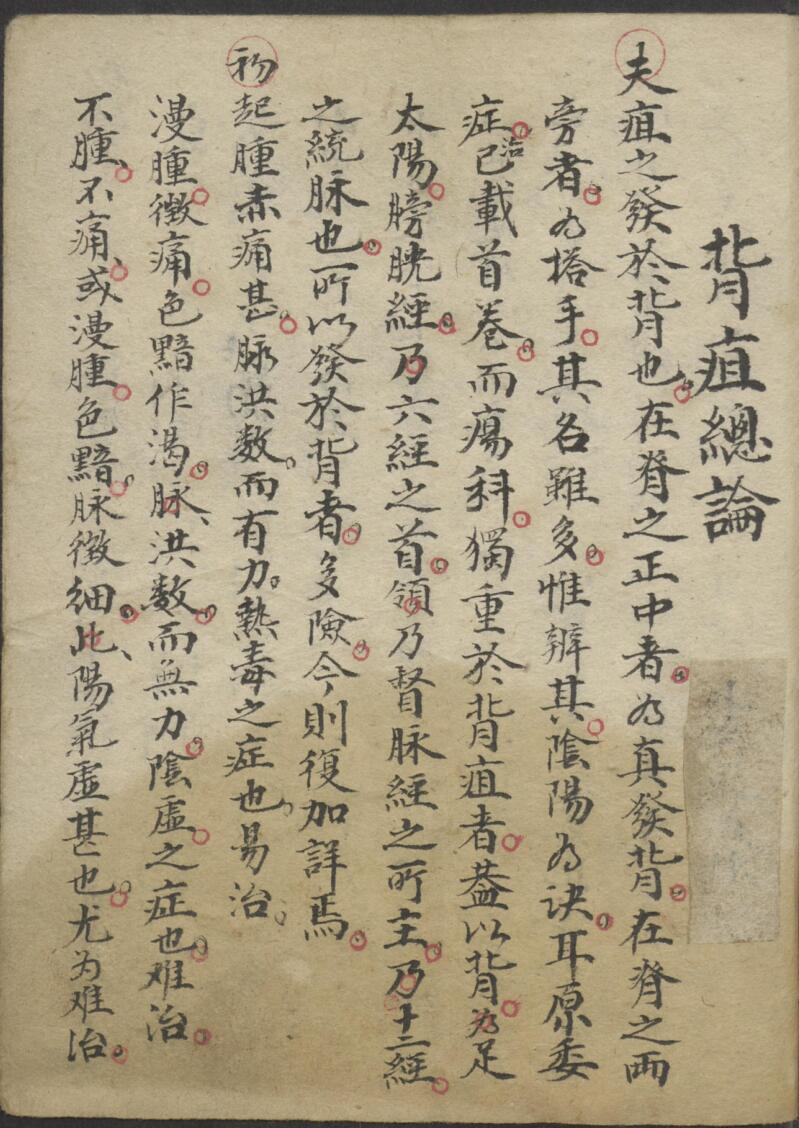 背疽總論
夫疽之發於背也在脊之正中者為真發背在脊之兩
旁者為塔手其名雖多惟辨其陰陽為訣耳原委
症治已載首卷而瘍科獨重於背疽者蓋以背為足
太陽膀胱經乃六經之首領乃督脉經之所主乃十二經
之統脉也所以發於背者多險今則復加詳焉
初起腫赤痛甚脉洪数而有力熱毒之症也易治
漫腫微痛色黯作渴脉洪数而無力陰虛之症也难治
不腫不痛或漫腫色黯脉微細此陽氣虛甚也尤为难治